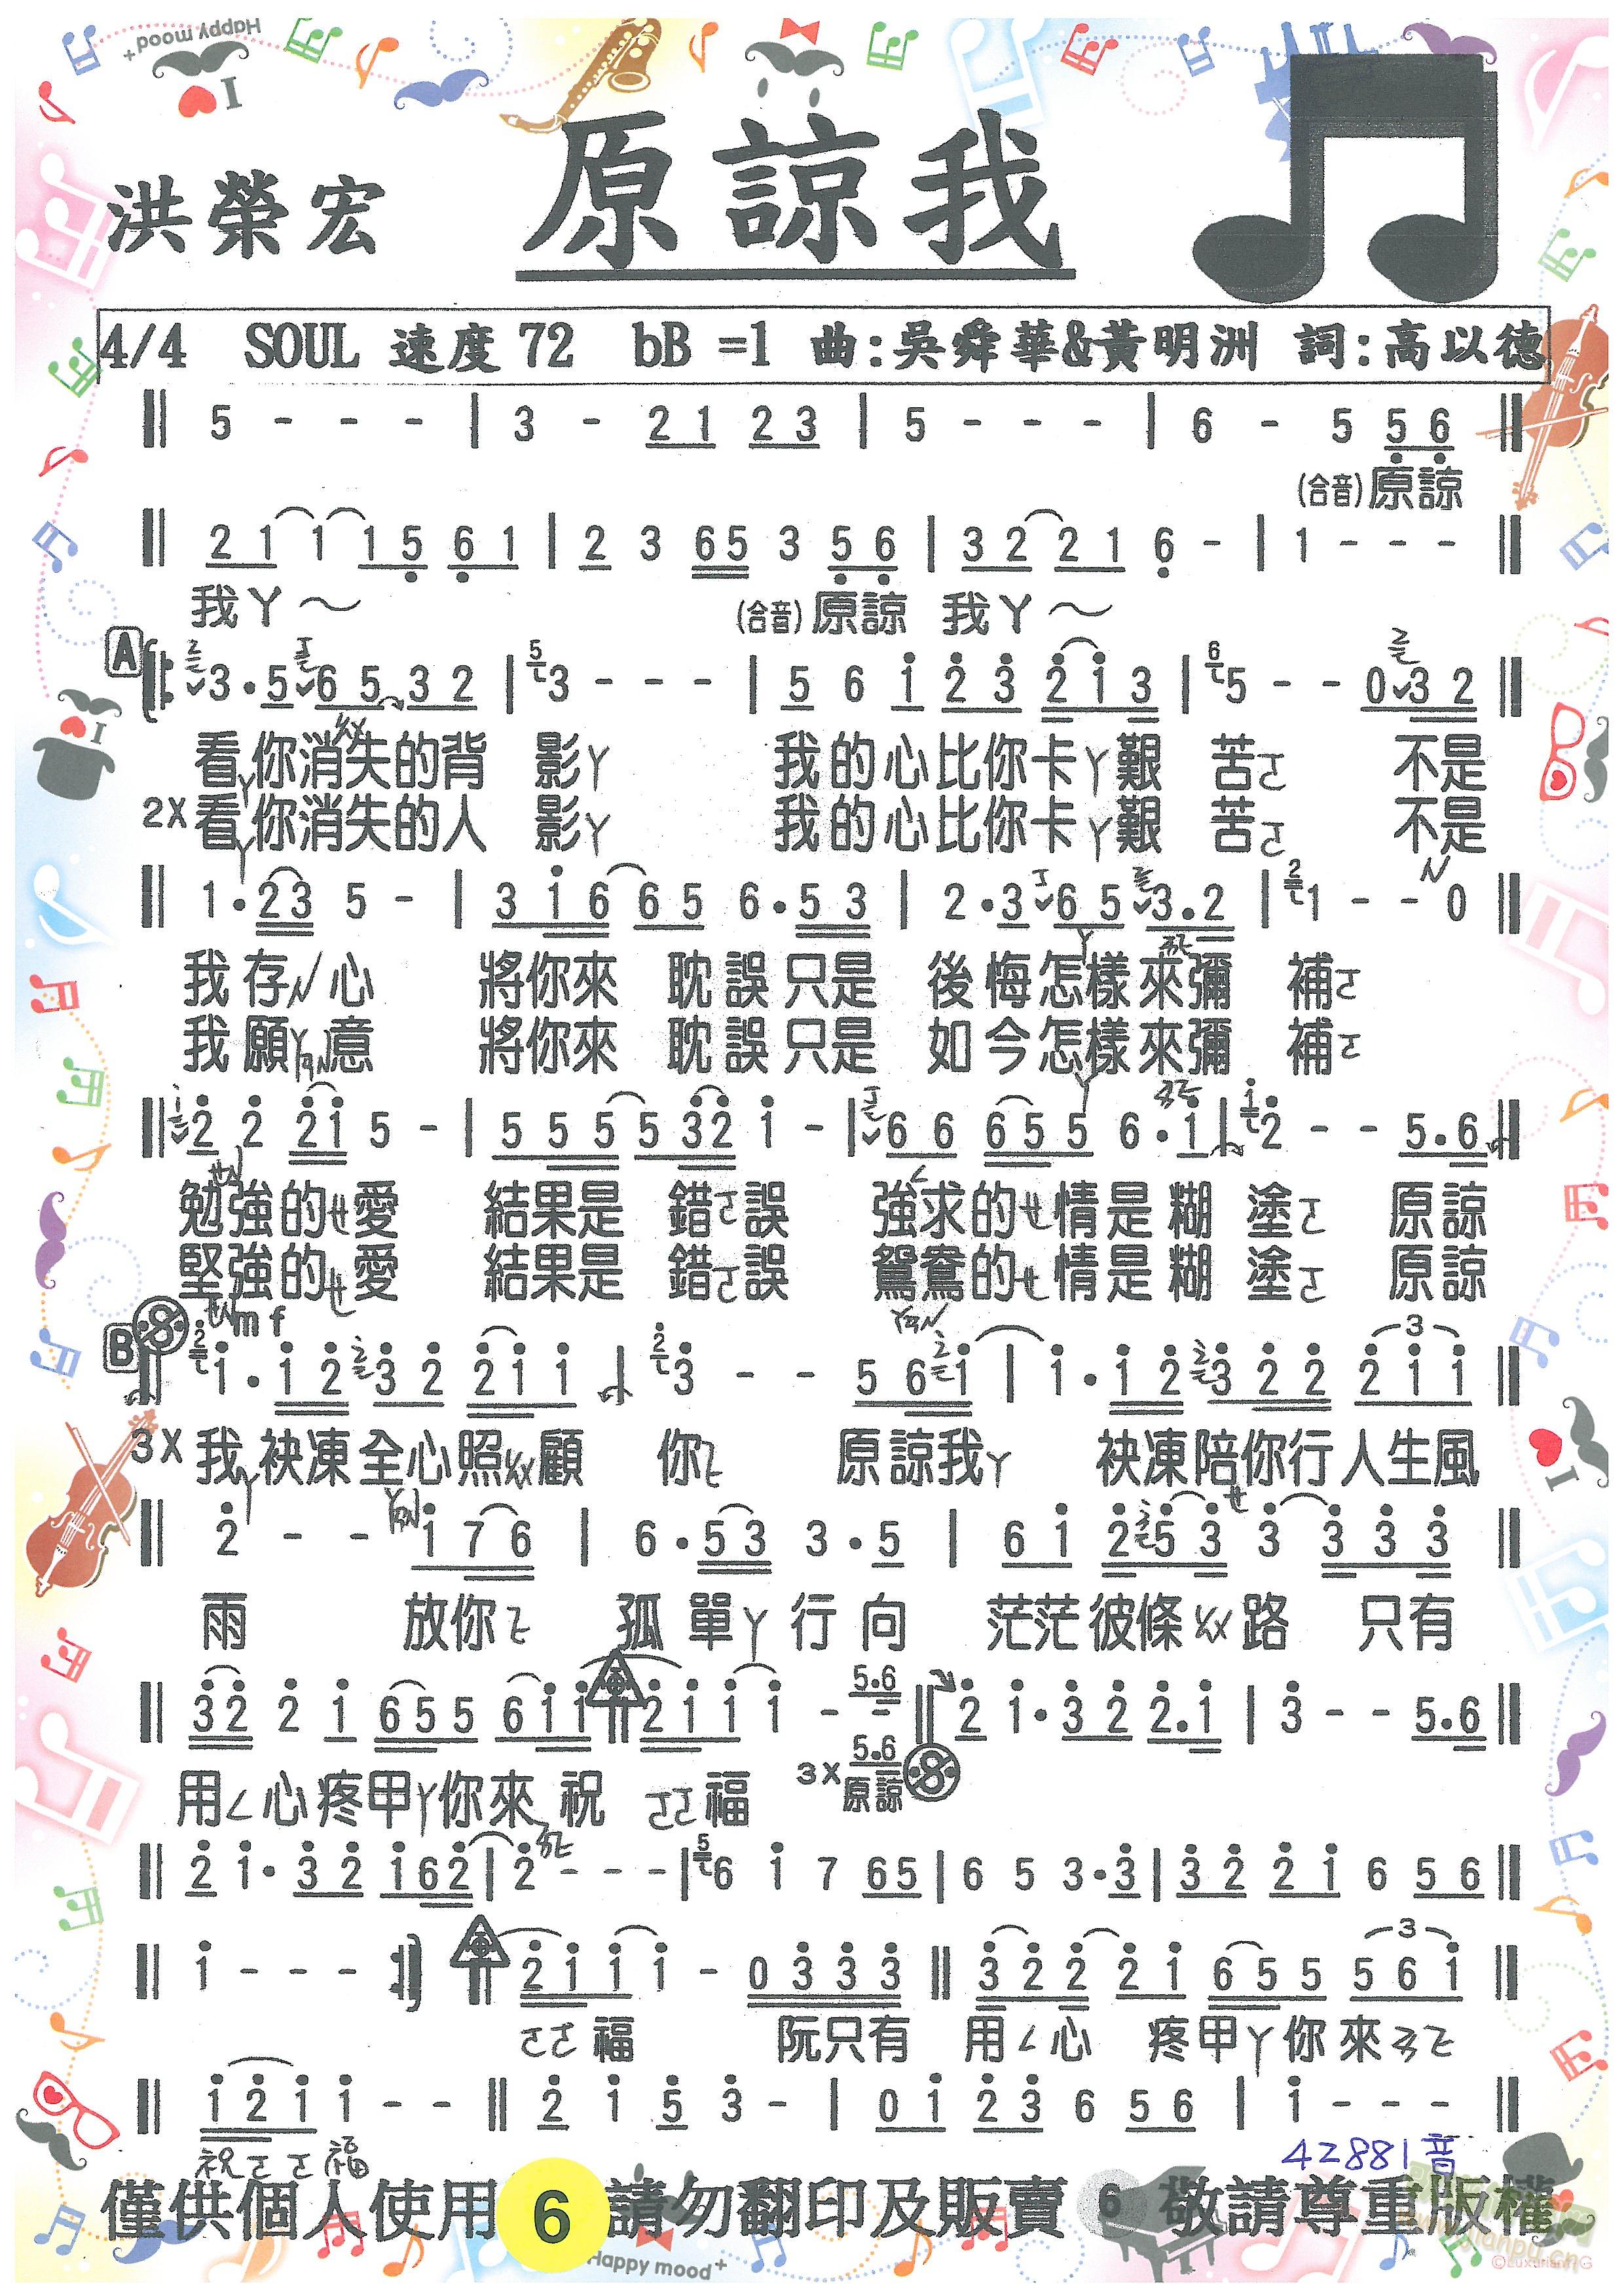 Happy mood+
I
洪榮宏
原諒我
4/4 SOUL 速度 72 bB =1 曲:吳舜華&黃明洲 詞:高以德
5 - - - | 3 - 2 1 2 3 | 5 - - - | 6 - 5 5 6
(合音)原諒
2 1 1 1 5 6 1 | 2 3 65 3 5 6 | 3 2 2 1 6 - | 1 - - -
我ㄚ～ (合音)原諒 我ㄚ～
A 3 . 5 6 5 3 2 | 3 - - - | 5 6 1 2 3 2 1 3 | 5 - - 0 3 2
看你消失的背 影ㄚ 我的心比你卡ㄚ艱 苦ㄛ 不是
2X 看你消失的人 影ㄚ 我的心比你卡ㄚ艱 苦ㄛ 不是
1 . 2 3 5 - | 3 1 6 6 5 6 . 5 3 | 2 . 3 6 5 3 . 2 | 1 - - 0
我存ㄣ心 將你來 耽誤只是 後悔怎樣來彌 補ㄛ
我願ㄢ意 將你來 耽誤只是 如今怎樣來彌 補ㄛ
2 2 2 1 5 - | 5 5 5 5 3 2 1 - | 6 6 6 5 5 6 . 1 | 2 - - 5 . 6
勉強的ㄝ愛 結果是 錯ㄛ誤 強求的ㄝ情是糊 塗ㄛ 原諒
堅強的ㄝ愛 結果是 錯ㄛ誤 鴛鴦的ㄝ情是糊 塗ㄛ 原諒
mf
B 1 . 1 2 3 2 2 1 1 | 3 - - 5 6 1 | 1 . 1 2 3 2 2 2 1 1
3X 我袂凍全心照ㄠ顧 你 原諒我ㄚ 袂凍陪你行人生風
2 - - 1 7 6 | 6 . 5 3 3 . 5 | 6 1 2 5 3 3 3 3 3
雨 放你 孤單ㄚ行向 茫茫彼條ㄠ路 只有
3 2 2 1 6 5 5 6 1 1 2 1 1 1 - - 5.6 2 1 . 3 2 2 . 1 | 3 - - 5 . 6
3X 5.6
原諒
用ㄥ心疼甲ㄚ你來 祝 ㄛㄛ福
2 1 . 3 2 1 6 2 | 2 - - - | 6 1 7 6 5 | 6 5 3 . 3 | 3 2 2 1 6 5 6
1 - - - 2 1 1 1 - 0 3 3 3 3 2 2 2 1 6 5 5 5 6 1
ㄛㄛ福 阮只有 用ㄥ心 疼甲ㄚ你來
1 2 1 1 - - 2 1 5 3 - | 0 1 2 3 6 5 6 | 1 - - -
祝ㄛㄛ福
42881音
僅供個人使用 6 請勿翻印及販賣 6 敬請尊重版權
Happy mood+